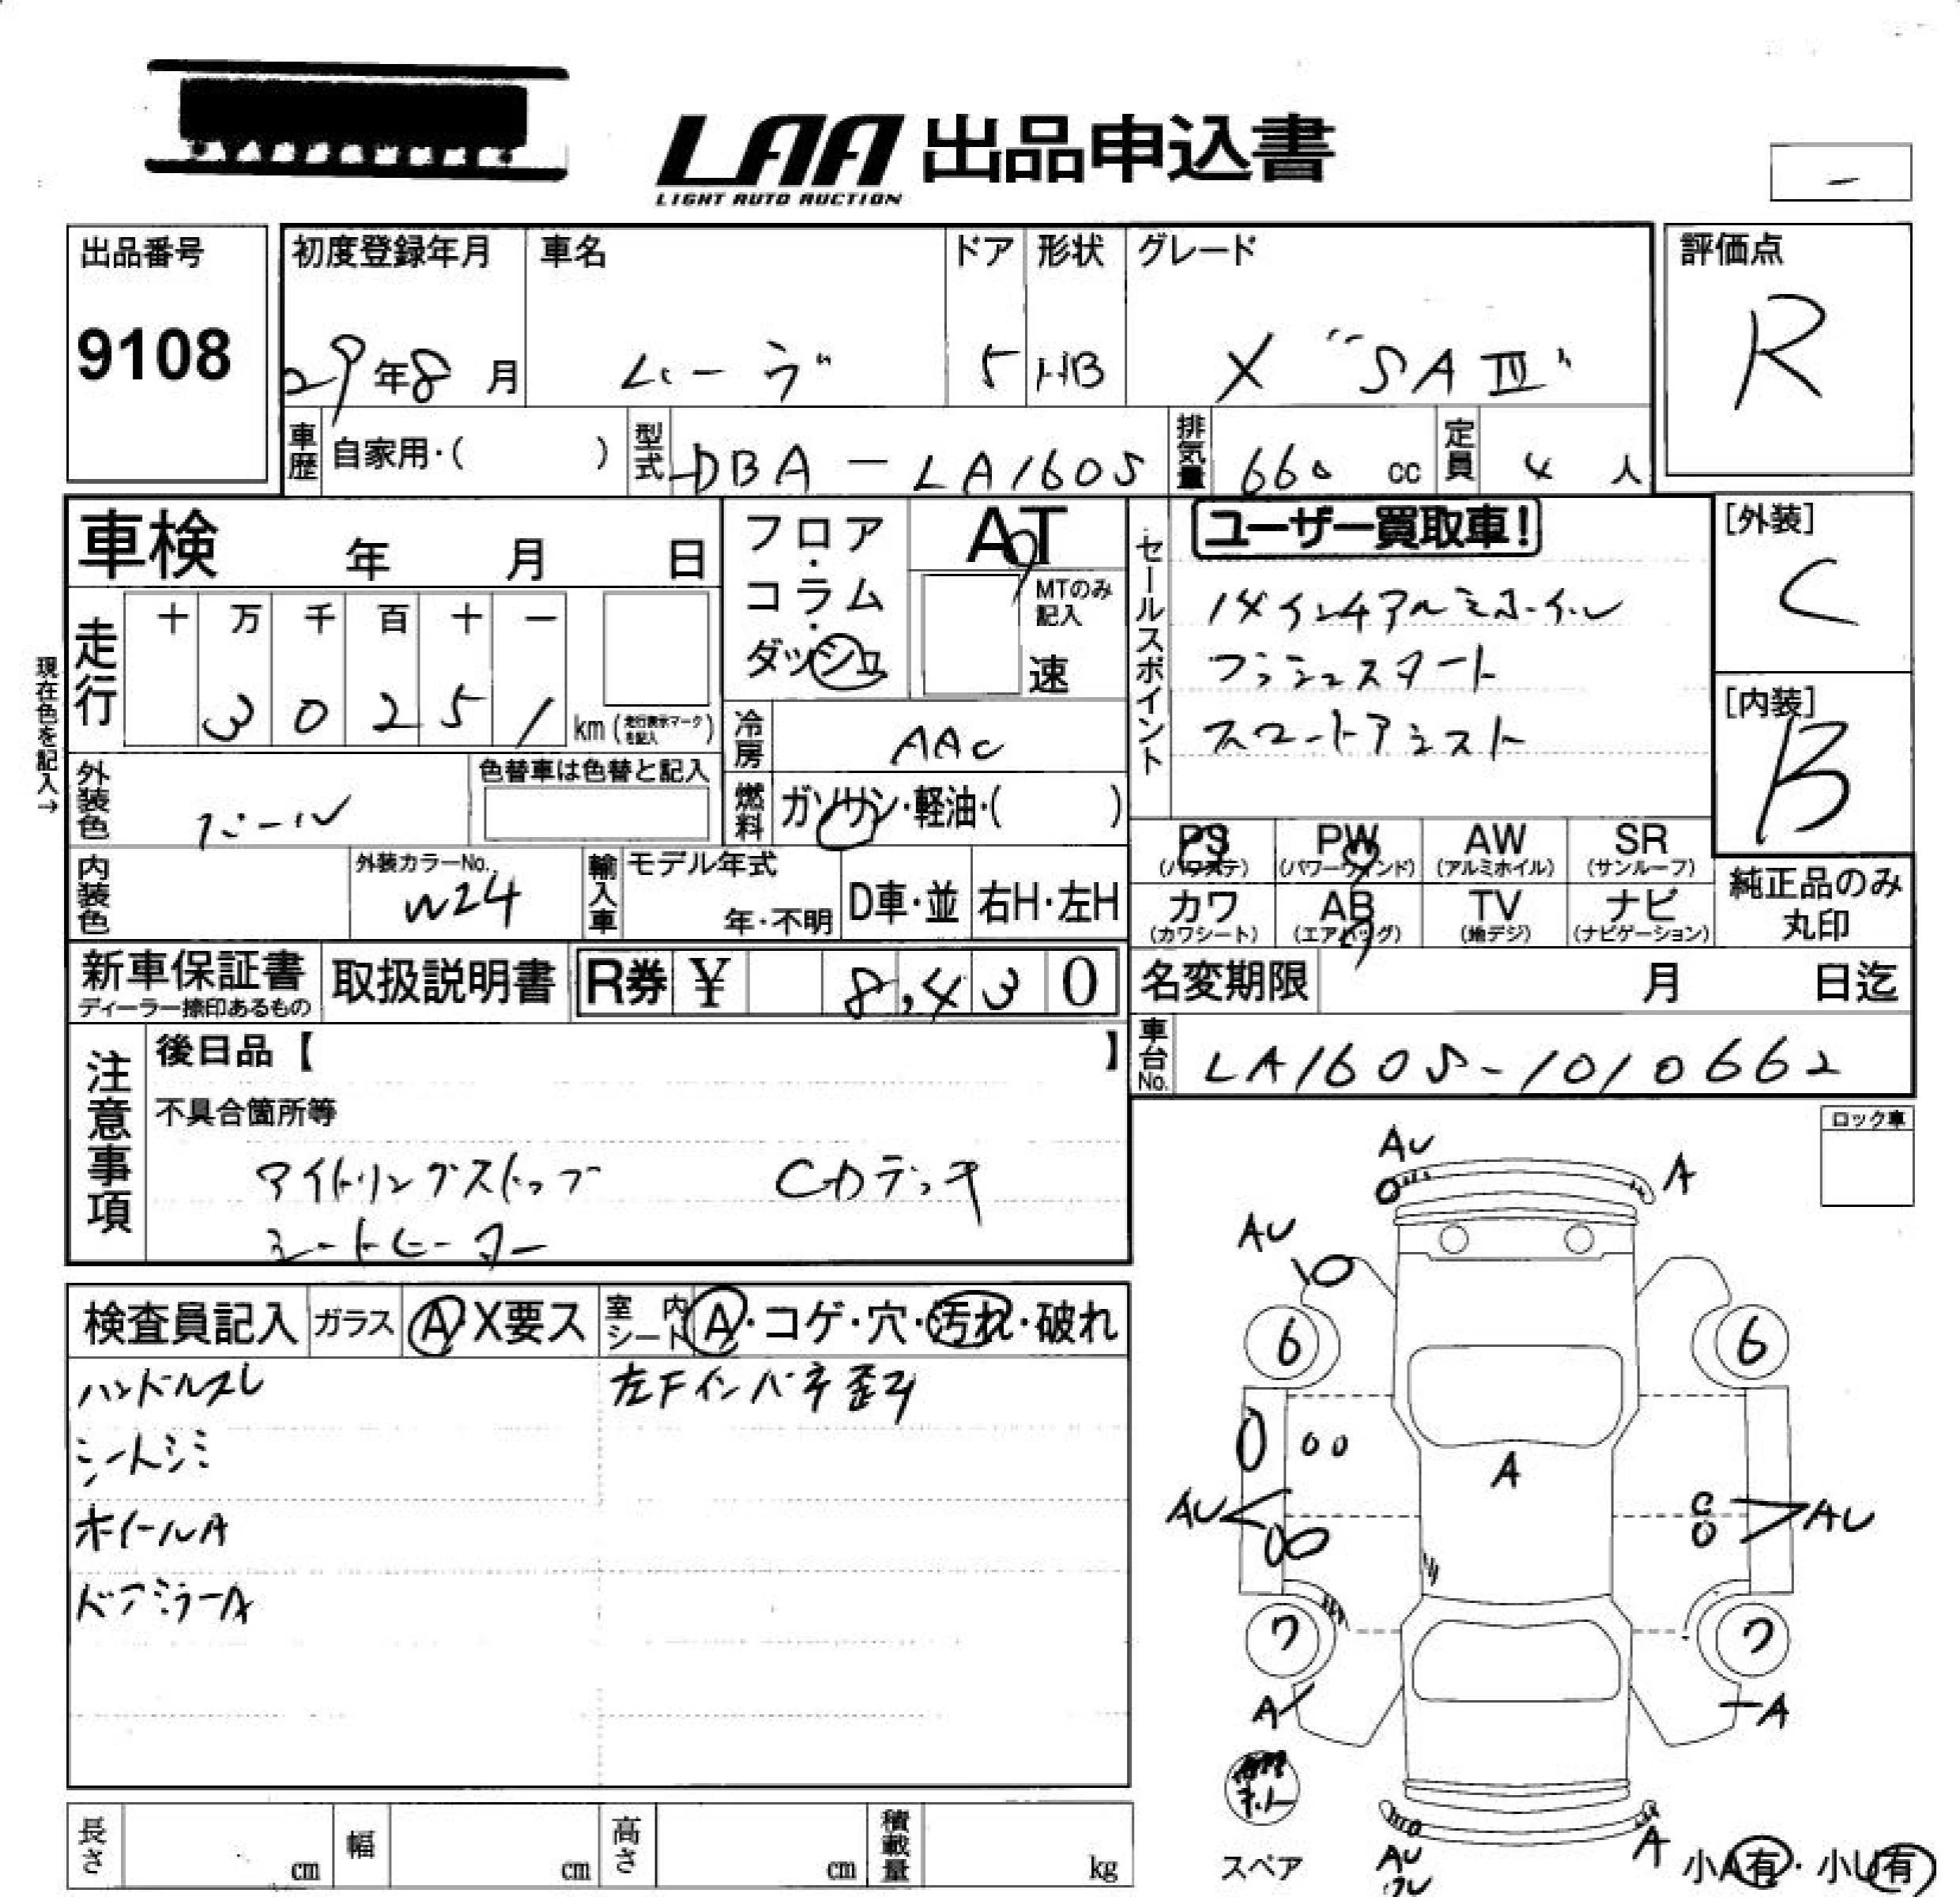 LAA 出品申込書
LIGHT AUTO AUCTION
出品番号
9108
初度登録年月
29年8月
車名
ムーヴ
ドア
5
形状
HB
グレード
X "SAⅢ"
評価点
R
車歴 自家用・( )
型式 DBA-LA160S
排気量 660 cc
定員 4 人
車検 年 月 日
フロア・コラム・ダッシュ
AT
MTのみ記入
速
セールスポイント
ユーザー買取車!
14インチアルミホイール
プッシュスタート
スマートアシスト
[外装]
C
[内装]
B
現在色を記入→
走行
十 万 千 百 十 一
3 0 2 5 1 km (走行表示マークを記入)
冷房 AAC
外装色 パール
色替車は色替と記入
燃料 ガソリン・軽油・( )
PS (パワステ)
PW (パワーウィンド)
AW (アルミホイル)
SR (サンルーフ)
カワ (カワシート)
AB (エアバッグ)
TV (地デジ)
ナビ (ナビゲーション)
純正品のみ丸印
内装色
外装カラーNo.
W24
輸入車
モデル年式
年・不明
D車・並
右H・左H
新車保証書
ディーラー捺印あるもの
取扱説明書
R券 ¥ 8,430
名変期限 月 日迄
車台No. LA160S-1010662
注意事項
後日品【 】
不具合箇所等
アイドリングストップ CDデッキ
シートヒーター
ロック車
検査員記入
ガラス A X要ス
室内シート A・コゲ・穴・汚れ・破れ
ハンドルスレ
左Fインパネ歪み
シートシミ
ホイールA
ドアミラーA
AU
A
AU
6
6
A
AU
AU
7
7
A
A
スペア
AU
A
小A有・小U有
長さ cm
幅 cm
高さ cm
積載量 kg